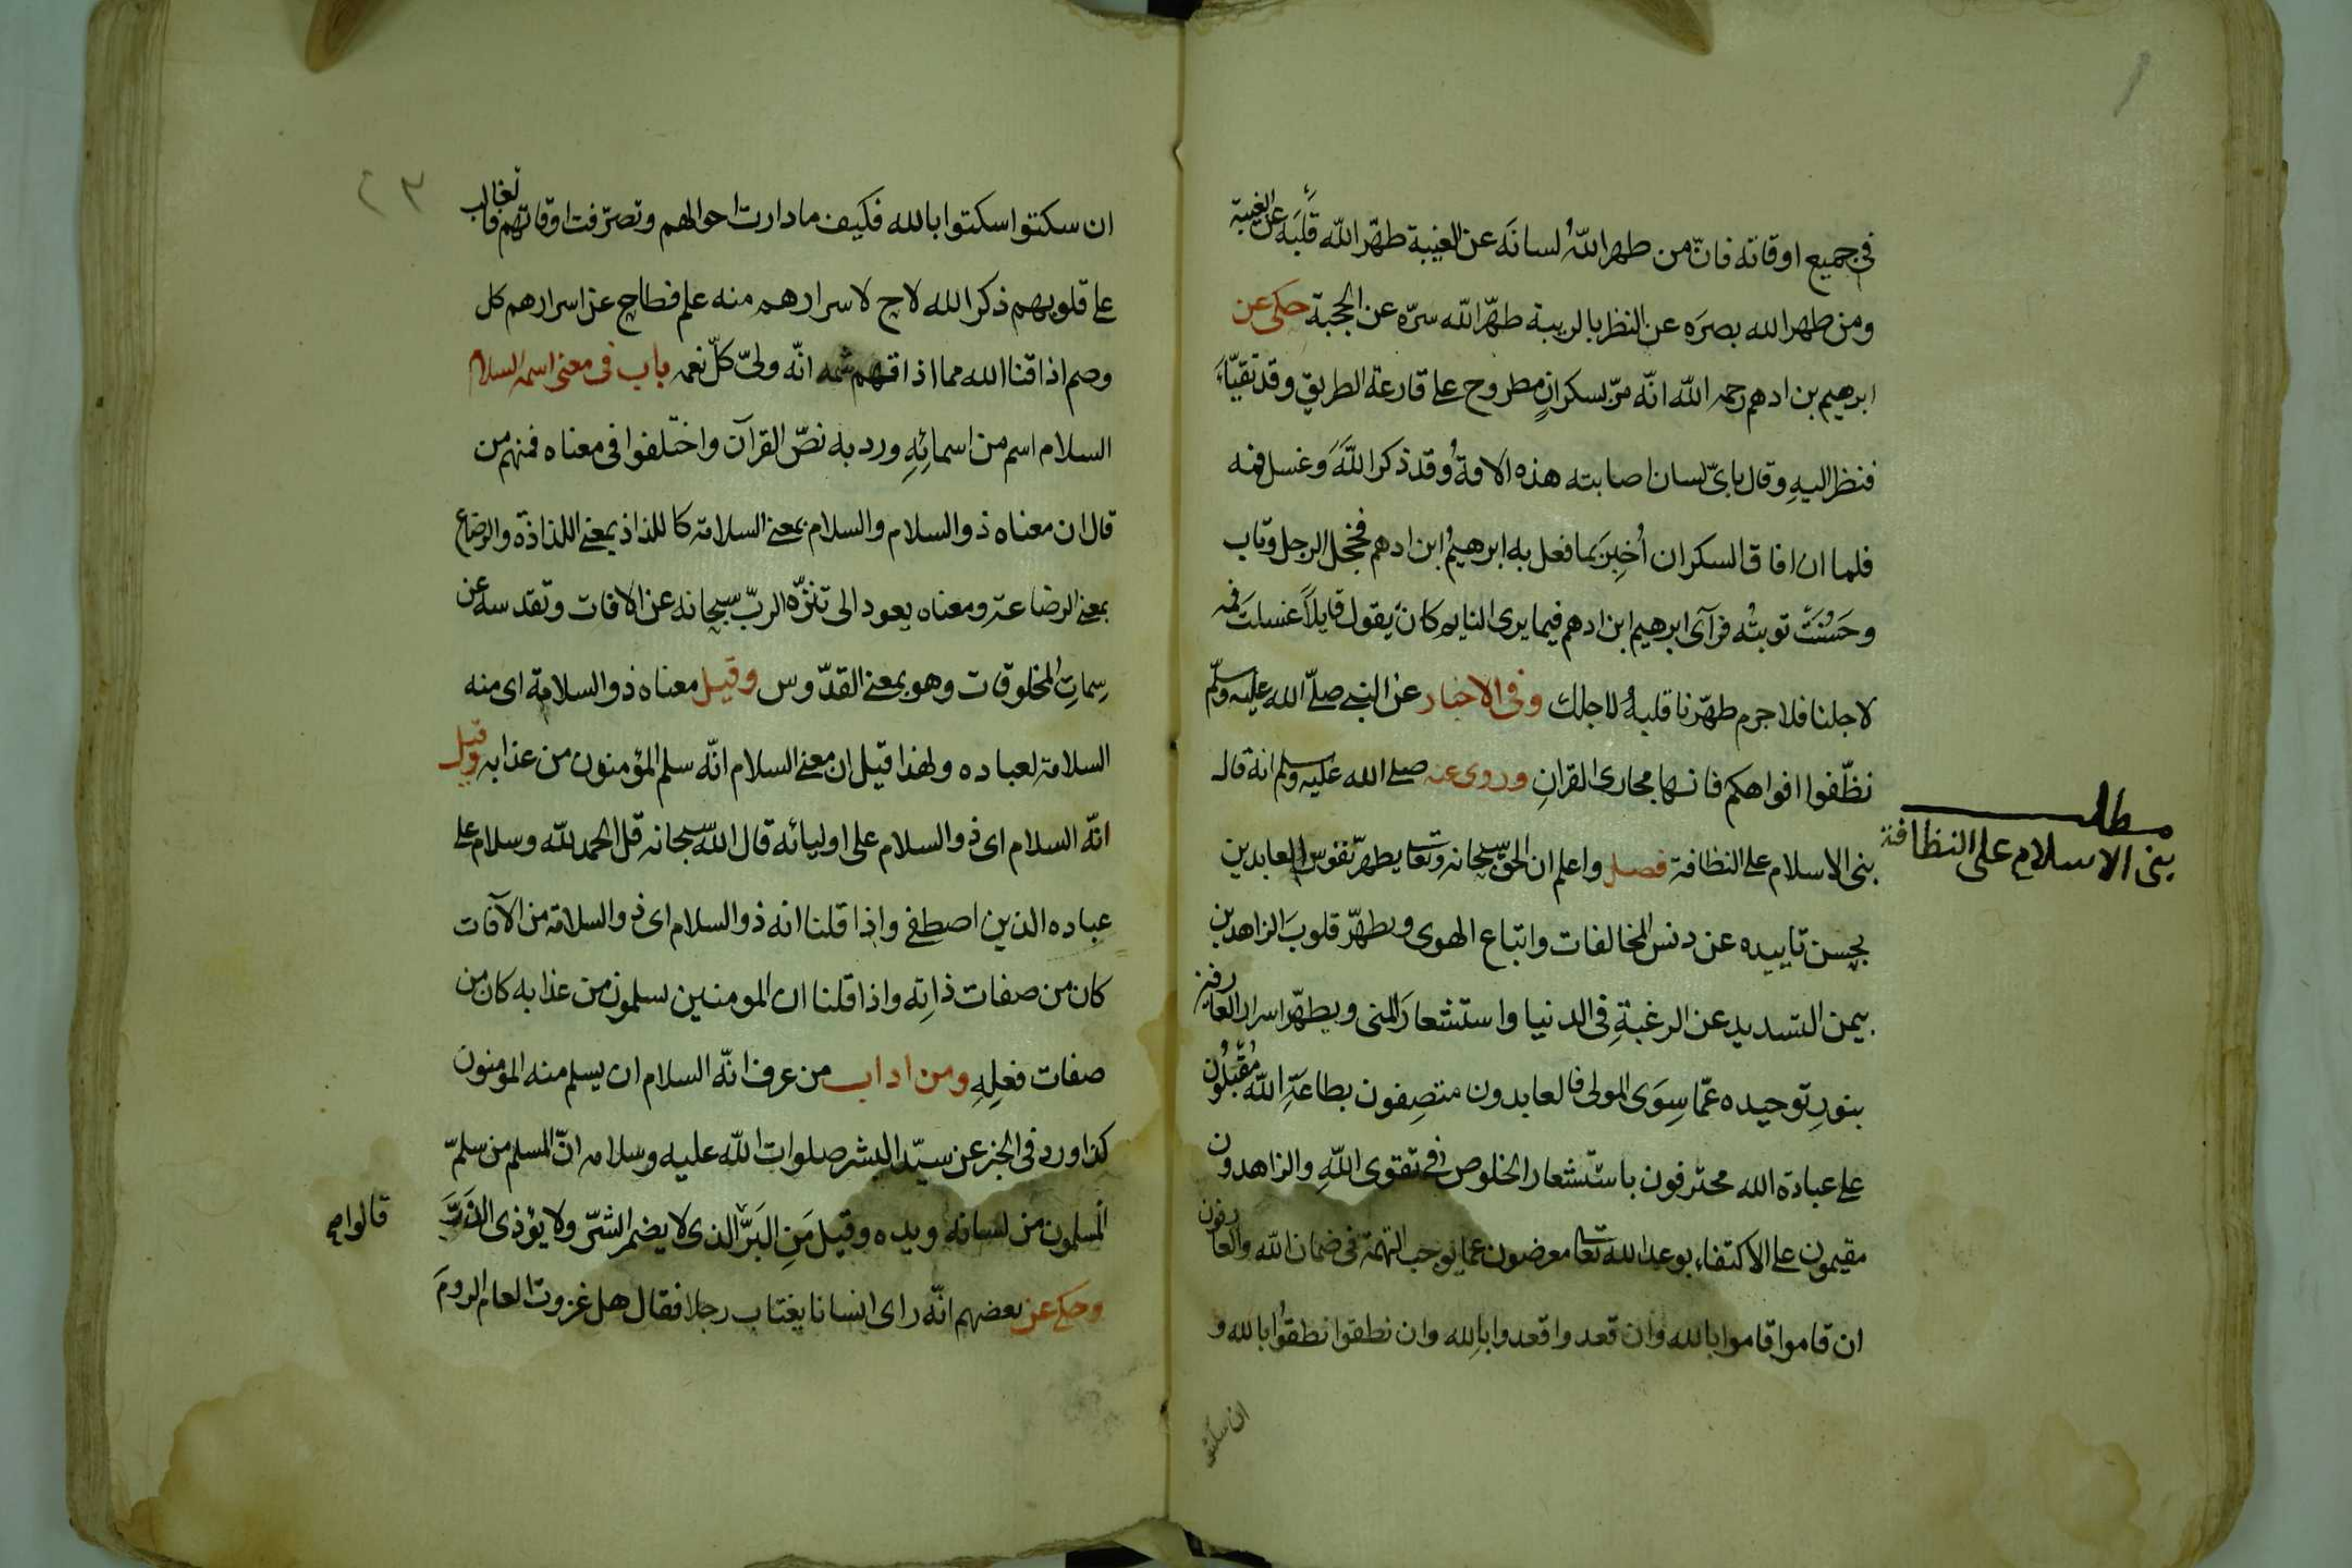 في جميع اوقاته فانّ من طهر اللّٰه لسانَه عن الغيبة طهّر اللّٰه قَلبَه عن الغيبة
ومن طهر الله بصرَه عن النظر بالريبة طهّر اللّٰه سرّه عن الحجبة حكى عن
ابرهيم بن ادهم رحمه اللّٰه انّه مرّ بسكرانٍ مطروح على قارعة الطريق وقد تقيّاءَ
فنظر اليهِ وقال بايّ لسان اصابته هذه الافةُ وقد ذكر اللّٰهَ وغسل فمه
فلما ان افاق السكران اُخبِرَ بما فعل به ابرهيمُ ابن ادهم فخجل الرجل وتاب
وحَسُنَتَْ توبتُه فرآى ابرهيم ابن ادهم فيما يرى النايم كانّ يقول قايلاً غسلتَ فمه
لاجلنا فلا جرم طهّرنا قلبهُ لاجلك وفى الاخبار عن النبي صلّى الله عليه وسلّم
نظّفوا افواهكم فانها مجارى القرانِ وروى عنه صلى الله عليه وسلم انه قال
بنى الاسلام على النظافة فصل واعلم ان الحق سبحانه وتعالى يطهرّ نفوسَ العابدين
مطلب
بنى الاسلام على النظافة
بحسن تاييده عن دنس المخالفات واتباع الهوى ويطهّر قلوبَ الزاهدين
بيمن التسديد عن الرغبةِ في الدنيا واستشعارَ المنى ويطهّر اسرار العارفين
بنورِ توحيده عمّا سِوَى المولى فالعابدون متصِفون بطاعةِ اللّٰه مُقبّلُون
على عبادة الله محترفون باستشعار الخلوص في تقوى اللّٰهِ والزاهدون
مقيمون على الاكتفاء بوعد الله تعا معرضون عما يوجب التهمة في ضمان اللّٰه والعارفون
ان قاموا قاموا بالله وان قعدوا قعدوا بالِله وان نطقوا نطقُوا بالله و
ان سكتوا
٢٣
ان سكتوا اسكتوا بالله فكيف ما دارت احوالهم وتصرّفت اوقاتهم فالغالب
على قلوبهم ذكر الله لاح لاسرارهم منه علم فطاح عن اسرارهم كل
وصم اذاقنا الله مما اذاقهم شمه انّه وليّ كلّ نعمه باب فى معنى اسمه السلام
السلام اسم من اسمائِهِ ورد به نصّ القرآن واختلفوا فى معناه فمنهم من
قال ان معناه ذو السلام والسلام بمعنى السلامة كاللذاذ بمعنى اللذاذة والرضاع
بمعنى الرضاعة ومعناه يعود الى تنزّه الربّ سبحانه عن الافات وتقدسه عن
سِماتِ المخلوقات وهو بمعنى القدّوس وقيل معناه ذو السلامة اى منه
السلامة لعباده ولهذا قيل ان معنى السلام انّه سلم المؤمنون من عذابه وقيل
انّه السلام اى ذو السلام على اوليائه قال اللّٰه سبحانه قل الحمد للّٰه وسلام على
عباده الذين اصطفى واذا قلنا انه ذو السلام اى ذو السلامة من الآفات
كان من صفات ذاتِه واذا قلنا ان المومنين يسلمون من عذابه كان من
صفات فعلِهِ ومن اداب من عرف انّه السلام ان يسلم منه المؤمنون
كذا ورد فى الخبر عن سيّد البشر صلوات اللّٰه عليه وسلامه انّ المسلم من سلم
المسلمون من لسانه ويده وقيل مَنِ البَرُّ الذى لا يضمر الشرّ ولا يؤذى الذَرَّ
وحكى عن بعضهم انّه راى انسانا يغتاب رجلا فقال هل غزوت العام الرومَ